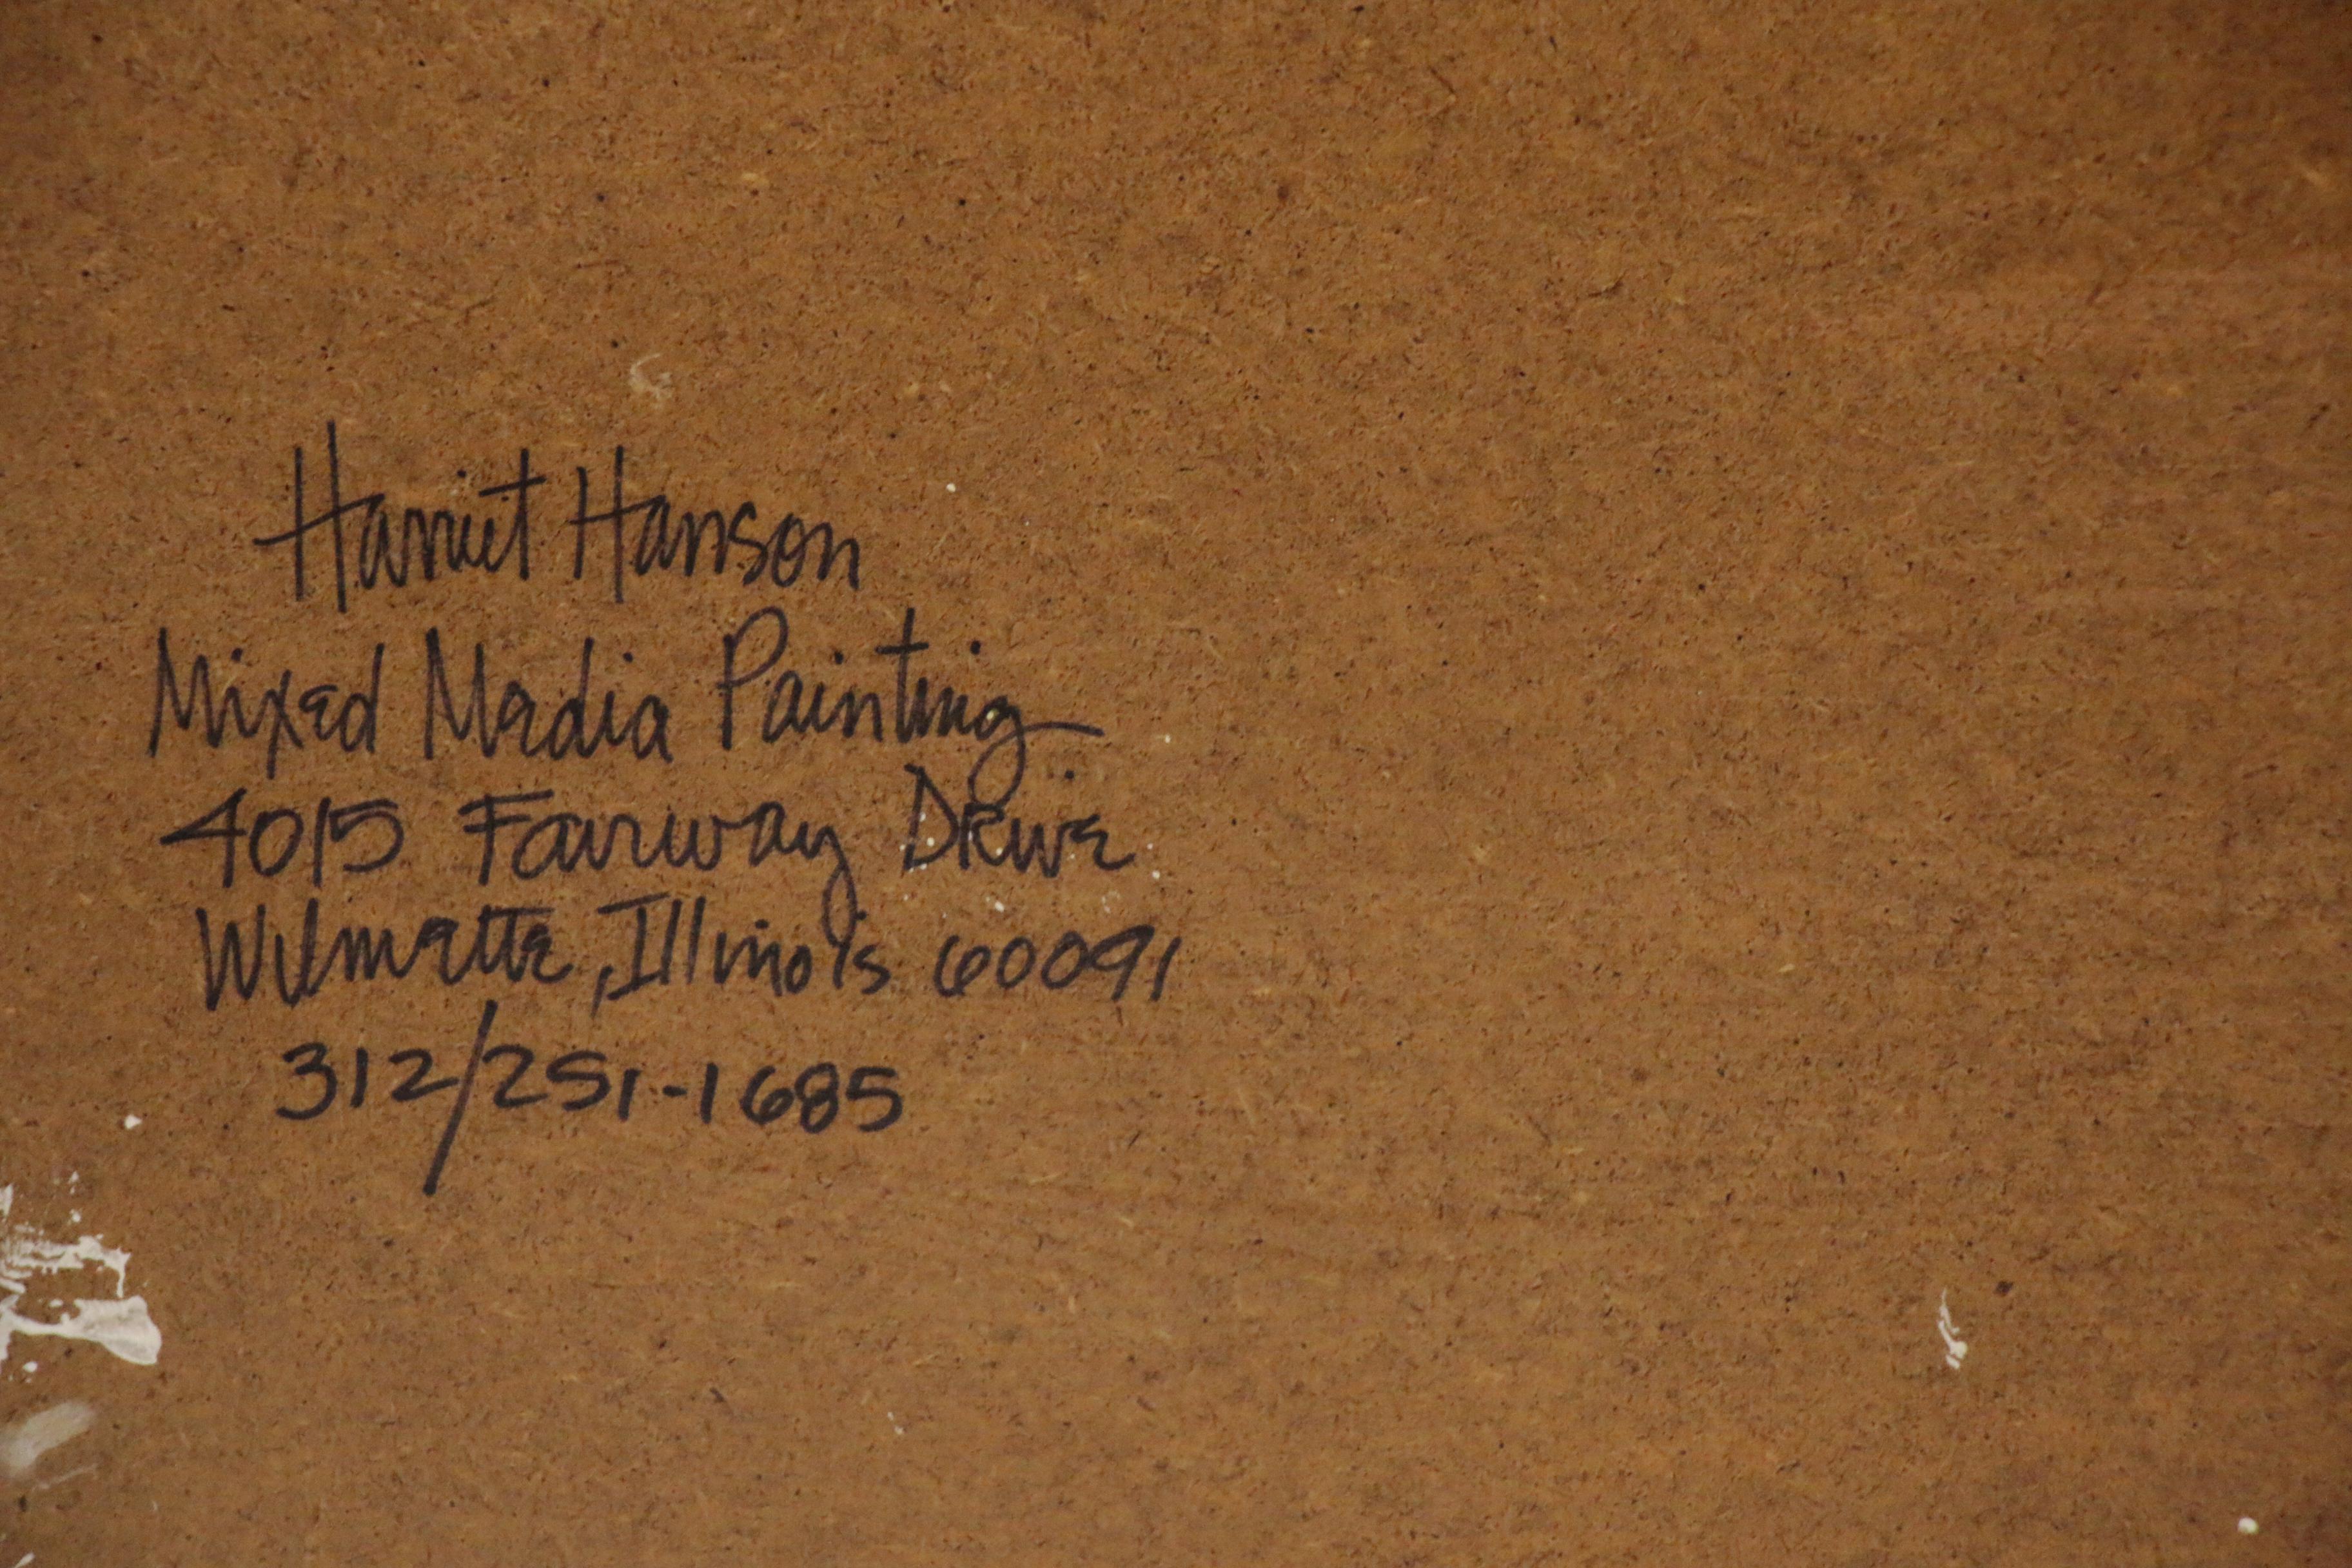 Harriet Hanson
Mixed Media Painting
4015 Fairway Drive
Wilmette, Illinois 60091
312/251-1685